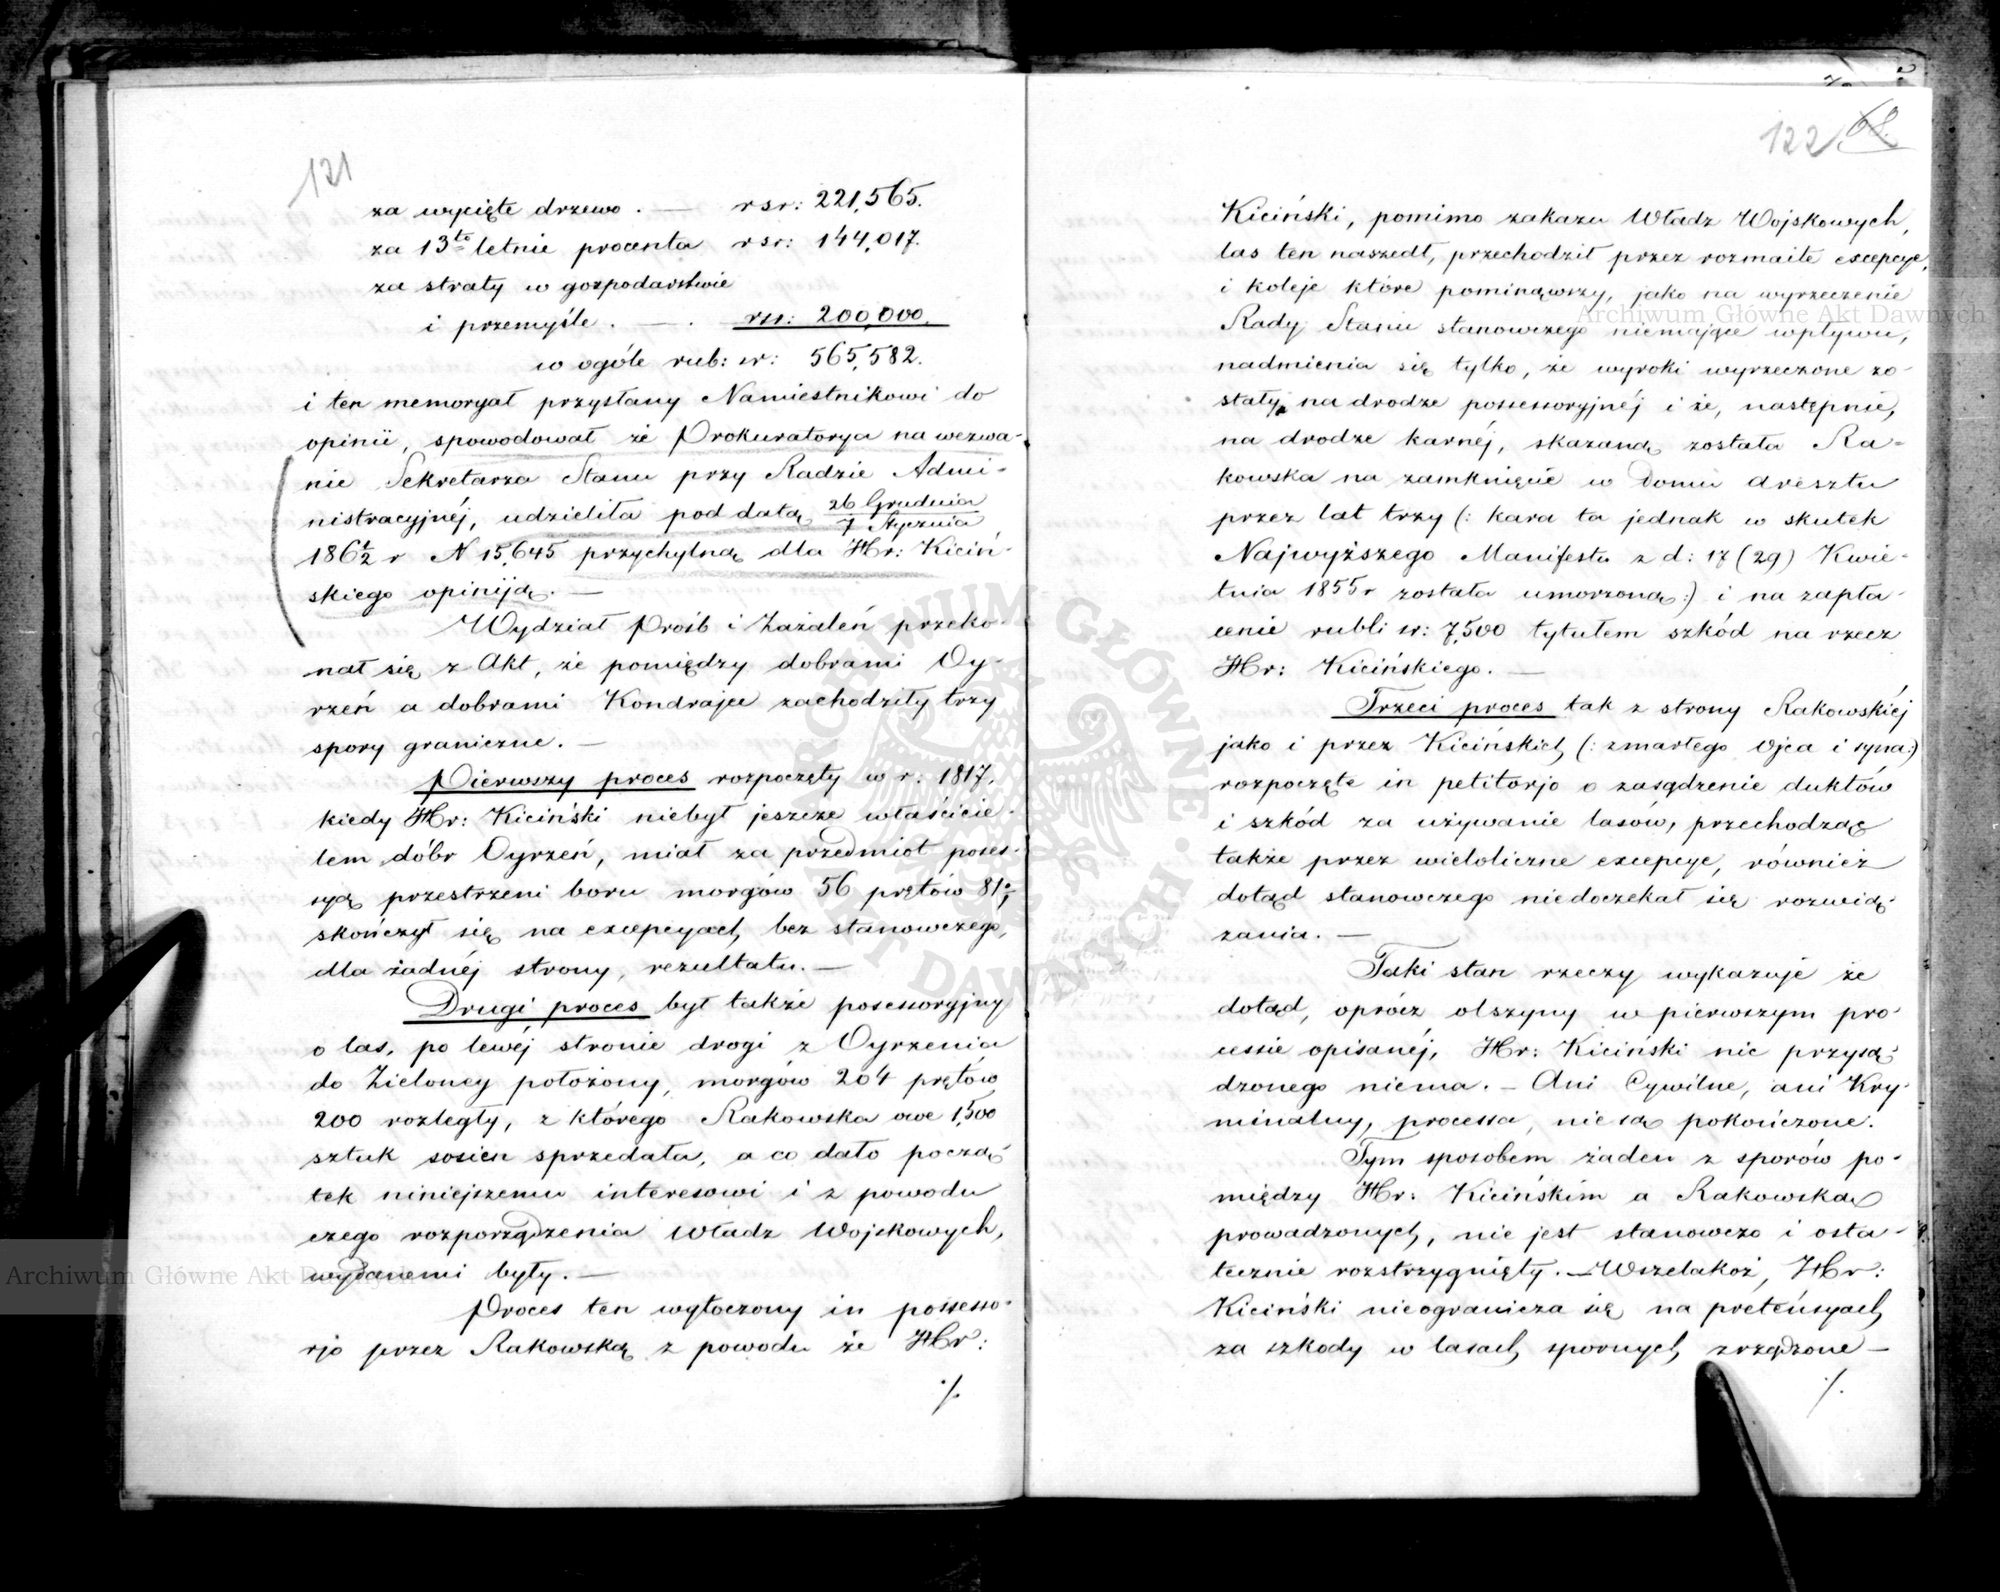 121
za wycięte drzewo . — rsr: 221,565.
za 13to letnie procenta rsr: 144,017.
za straty w gospodarstwie
i przemyśle . — . rsr: 200,000.
w ogóle rub: sr: 565,582.
i ten memoryał przysłany Namiestnikowi do
opinii, spowodował że Prokuratorya na wezwa-
nie Sekretarza Stanu przy Radzie Admi-
nistracyjnéj, udzieliła pod datą 26 Grudnia / 7 Stycznia
186½ r N 15,645 przychylną dla Hr: Kiciń-
skiego opiniją. —
Wydział Próśb i Zażaleń przeko-
nał się z Akt, że pomiędzy dobrami Oy-
rzeń a dobrami Kondrajee zachodziły trzy
spory graniczne. —
Pierwszy proces rozpoczęty w r: 1817,
kiedy Hr: Kiciński niebył jeszcze właścicie-
lem dóbr Oyrzeń, miał za przedmiot poses-
syą przestrzeni boru morgów 56 prętów 81,
skończył się na excepcyach, bez stanowczego,
dla żadnéj strony, rezultatu. —
Drugi proces był także posessoryjny
o las, po lewéj stronie drogi z Oyrzenia
do Zieloney położony, morgów 204 prętów
200 rozległy, z którego Rakowska owe 1,500
sztuk sosien sprzedała, a co dało począ-
tek niniejszemu interesowi i z powodu
czego rozporządzenia Władz Wojskowych,
wydanemi były. —
Proces ten wytoczony in possesso-
rjo przez Rakowską z powodu że Hr:
./.
122 68.
Kiciński, pomimo zakazu Władz Wojskowych,
las ten naszedł, przechodził przez rozmaite excepcye,
i koleje które pominąwszy, jako na wyrzeczenie
Rady Stanu stanowczego niemające wpływu,
nadmienia się tylko, że wyroki wyrzeczone zo-
stały na drodze possessoryjnéj i że, następnie,
na drodze karnéj, skazaną została Ra-
kowska na zamknięcie w Domu Aresztu
przez lat trzy (: kara ta jednak w skutek
Najwyższego Manifestu z d: 17 (29) Kwie-
tnia 1855 r została umorzoną :) i na zapła-
cenie rubli sr: 7,500 tytułem szkód na rzecz
Hr: Kicińskiego. —
Trzeci proces tak z strony Rakowskiéj
jako i przez Kicińskich (: zmarłego Ojca i syna :)
rozpoczęte in petitorjo o zasądzenie duktów
i szkód za używanie lasów, przechodząc
także przez wieloliczne excepcye, również
dotąd stanowczego niedoczekał się rozwią-
zania. —
Taki stan rzeczy wykazuje że
dotąd, oprócz olszyny w pierwszym pro-
cessie opisanéj, Hr: Kiciński nic przysą-
dzonego niema. — Ani Cywilne, ani Kry-
minalny, processa, nie są pokończone.
Tym sposobem żaden z sporów po-
między Hr: Kicińskim a Rakowską
prowadzonych, nie jest stanowczo i osta-
tecznie rozstrzygnięty. — Wszelakoż, Hr:
Kiciński nieogranicza się na pretensyach
za szkody w lasach spornych zrządzone —
./.
Archiwum Główne Akt Dawnych
Archiwum Główne Akt Dawnych
ARCHIWUM GŁÓWNE AKT DAWNYCH